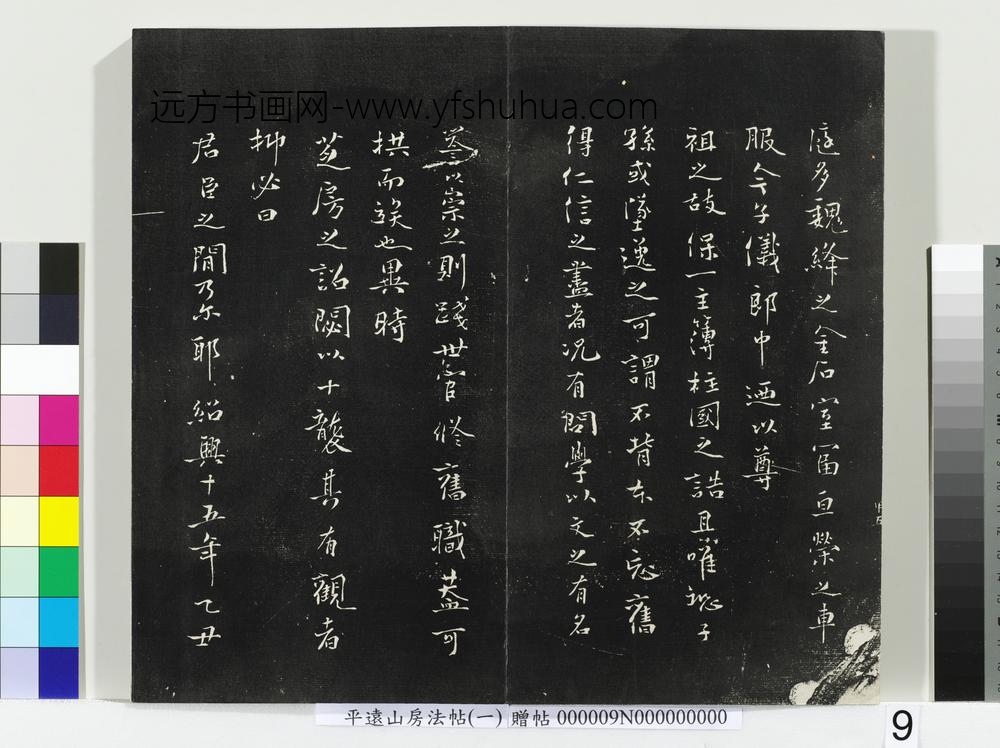 庭多魏絳之金石室富亘榮之車
服今子儀郎中迺以尊
祖之故保一主簿柱國之誥且嚾恐子
孫或墜逸之可謂不背本不忘舊
得仁信之盡者況有問學以文之有名
以崇之則踐世官修舊職蓋可
拱而竢也異時
芝房之詔閟以十襲其有觀者
抑必曰
君臣之間乃尓耶紹興十五年乙丑
远方书画网-www.yfshuhua.com
平遠山房法帖(一) 贈帖 000009N000000000
9